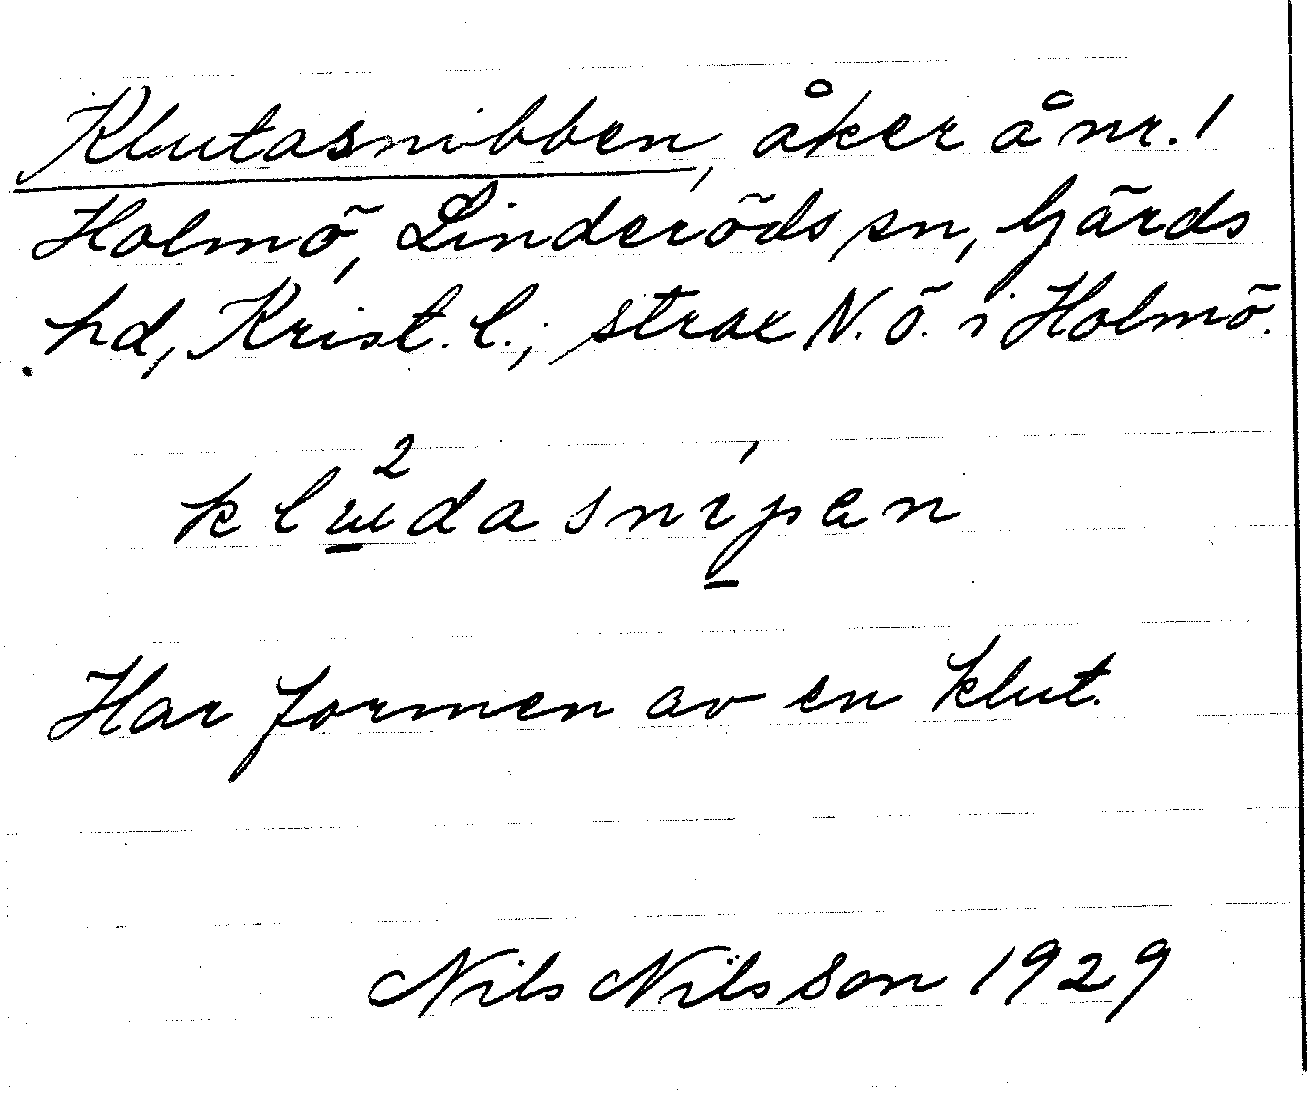 Klutasnibben, åker å nr. 1
Holmö, Linderöds sn, Gärds
hd, Krist. l., strax N. ö. i Holmö.
klɯ²dasnípan
Har formen av en klut.
Nils Nilsson 1929